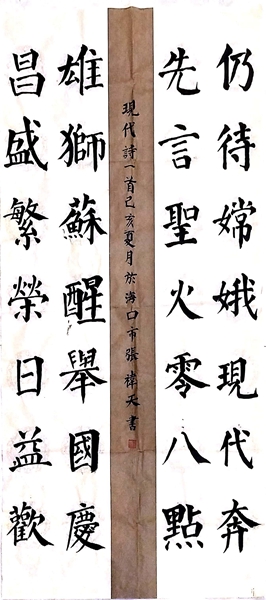 仍待嫦娥現代奔
先言聖火零八點
雄獅蘇醒舉國慶
昌盛繁榮日益歡
現代詩一首己亥夏月於海口市張禕天書